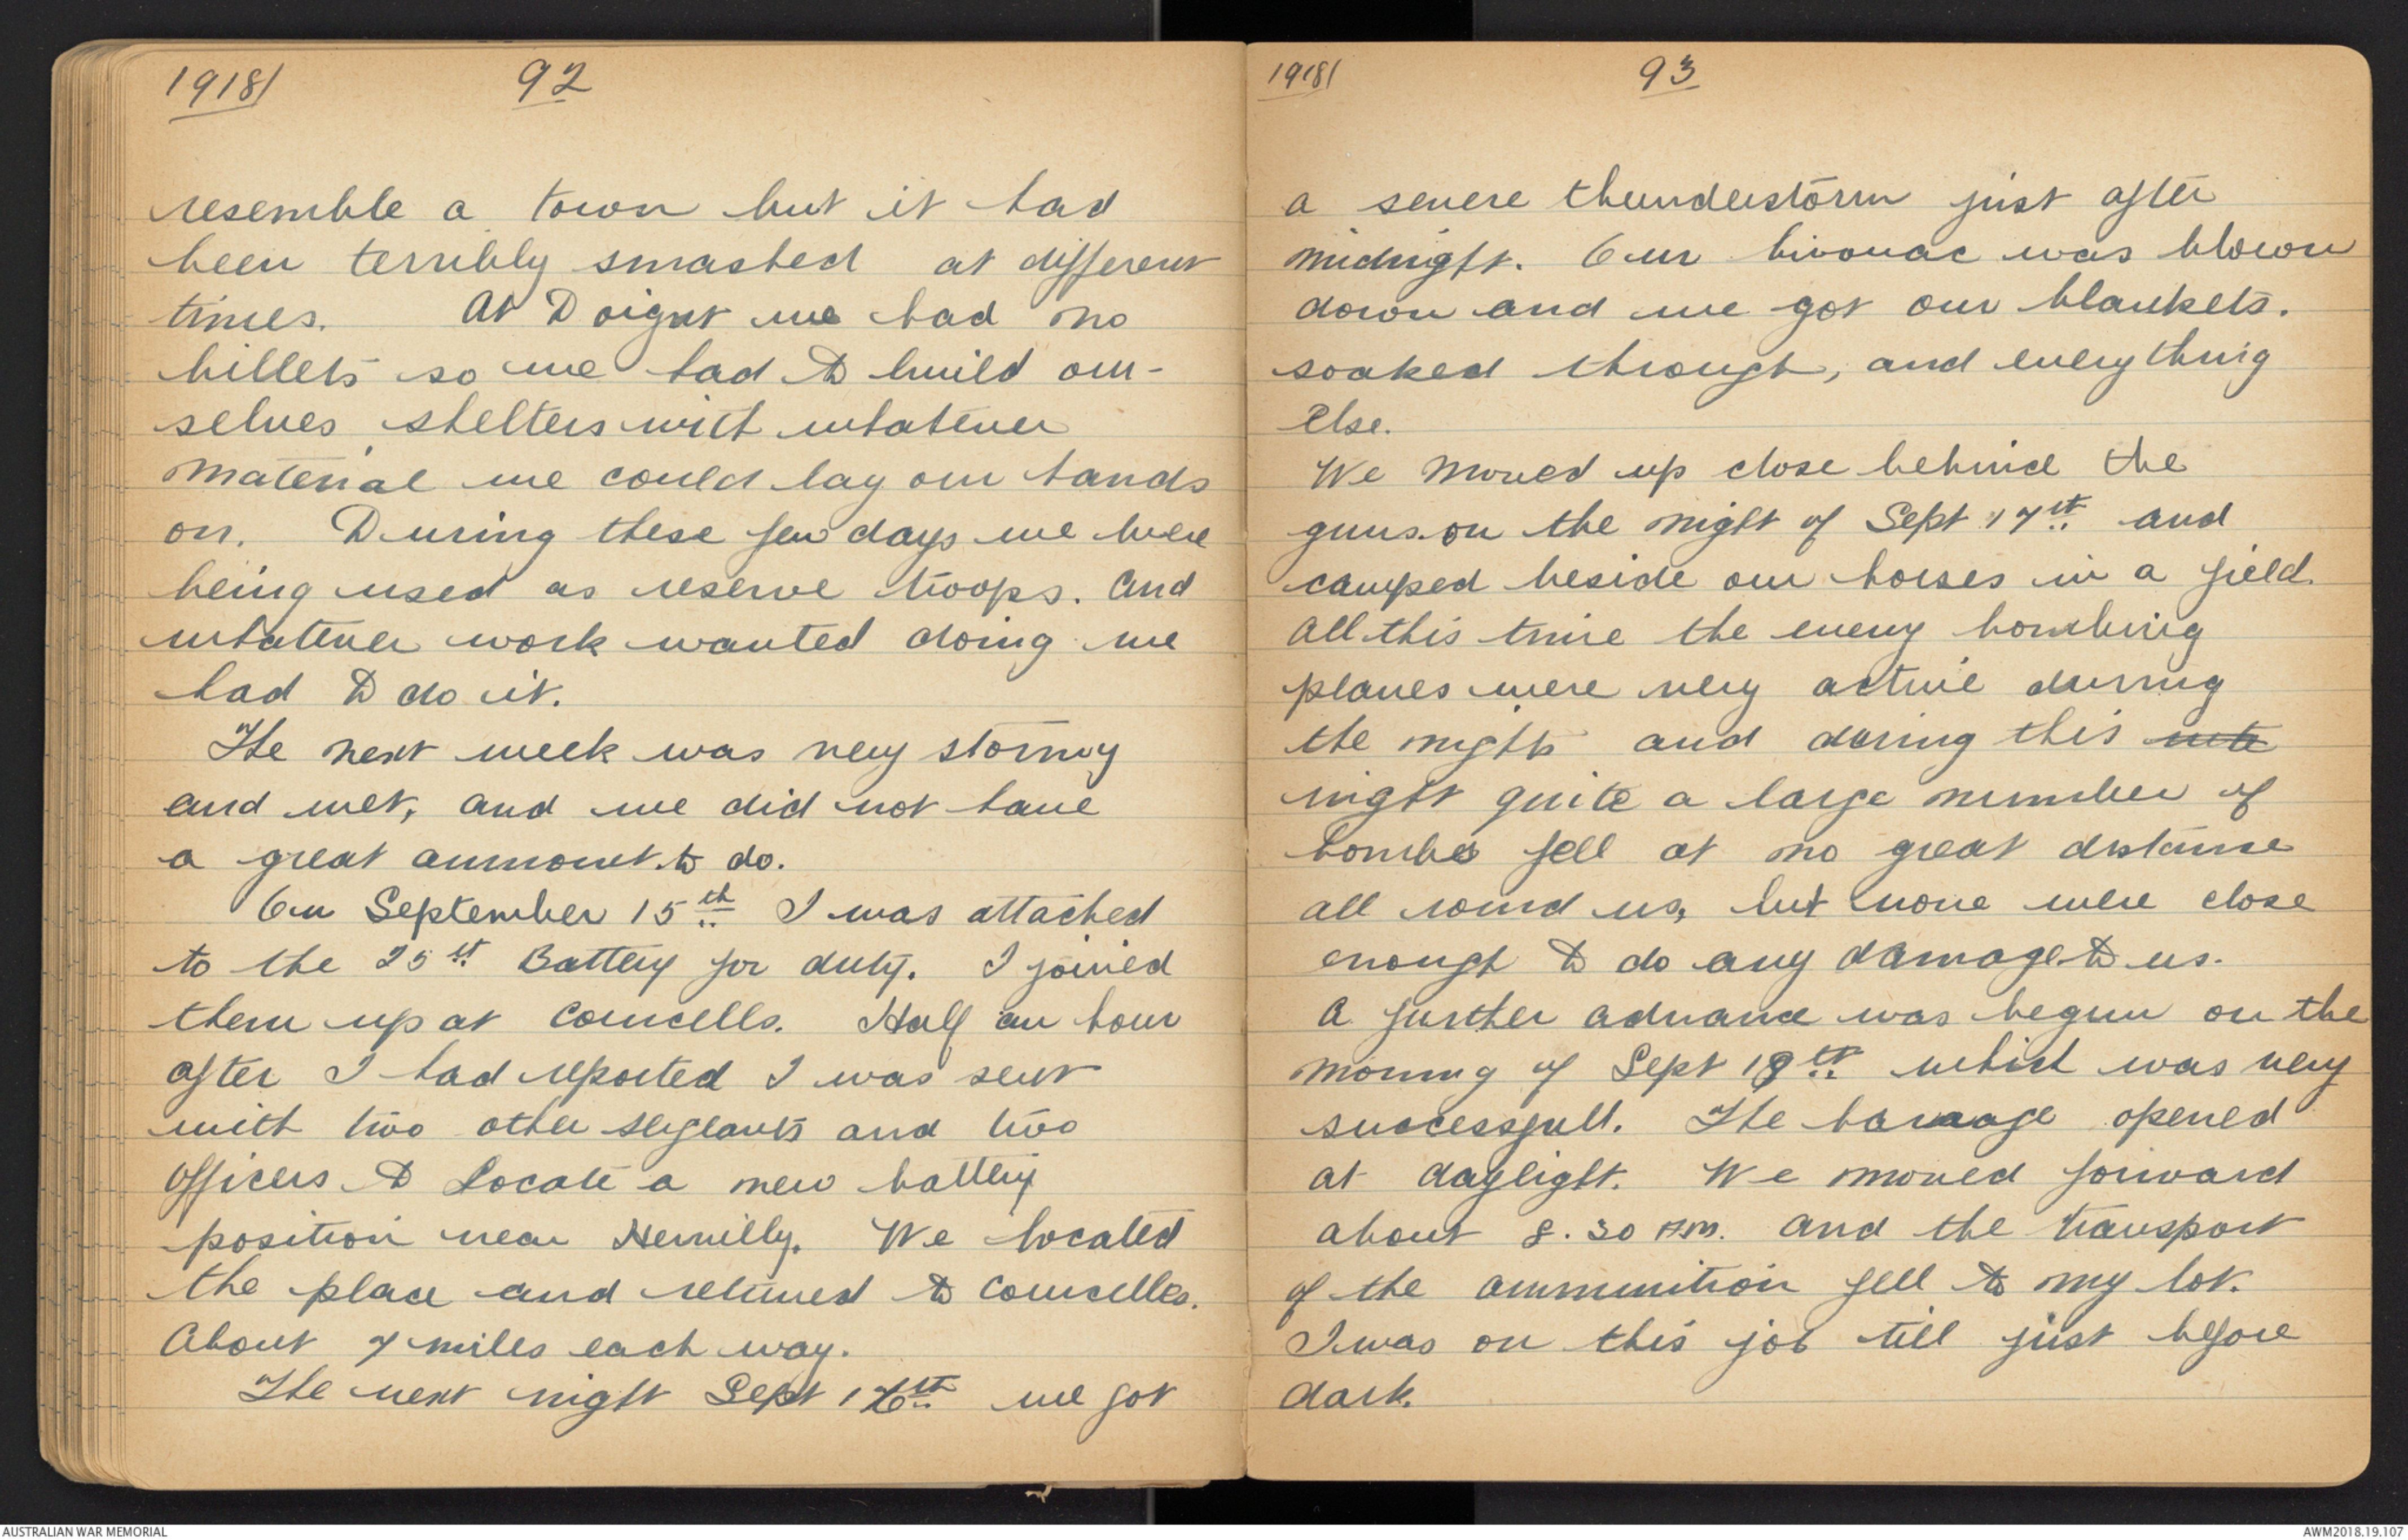 1918/ 92
resemble a town but it had
been terribly smashed at different
times. At Doignt we had no
billets so we had to build our-
selves shelters with whatever
material we could lay our hands
on. During these few days we were
being used as reserve troops. And
whatever work wanted doing we
had to do it.
The next week was very stormy
and wet, and we did not have
a great ammount to do.
On September 15th I was attached
to the 25th Battery for duty. I joined
them up at Courcells. Half an hour
after I had reported I was sent
with two other sergeants and two
officers to locate a new battery
position near Hervilly. We located
the place and returned to Courcelles.
About 7 miles each way.
The next night Sept 16th we got
1918/ 93
a severe thunderstorm just after
midnight. Our bivouac was blown
down and we got our blankets.
soaked through, and everything
else.
We moved up close behind the
guns on the night of Sept 17th and
camped beside our horses in a field.
All this time the enemy bombing
planes were very active during
the nights and during this
night quite a large number of
bombs fell at no great distance
all round us, but none were close
enough to do any damage to us.
A further advance was begun on the
morning of Sept 18th which was very
successfull. The barrage opened
at daylight. We moved forward
about 8.30 AM. and the transport
of the ammunition fell to my lot.
I was on this job till just before
dark.
AUSTRALIAN WAR MEMORIAL
AWM2018.19.107